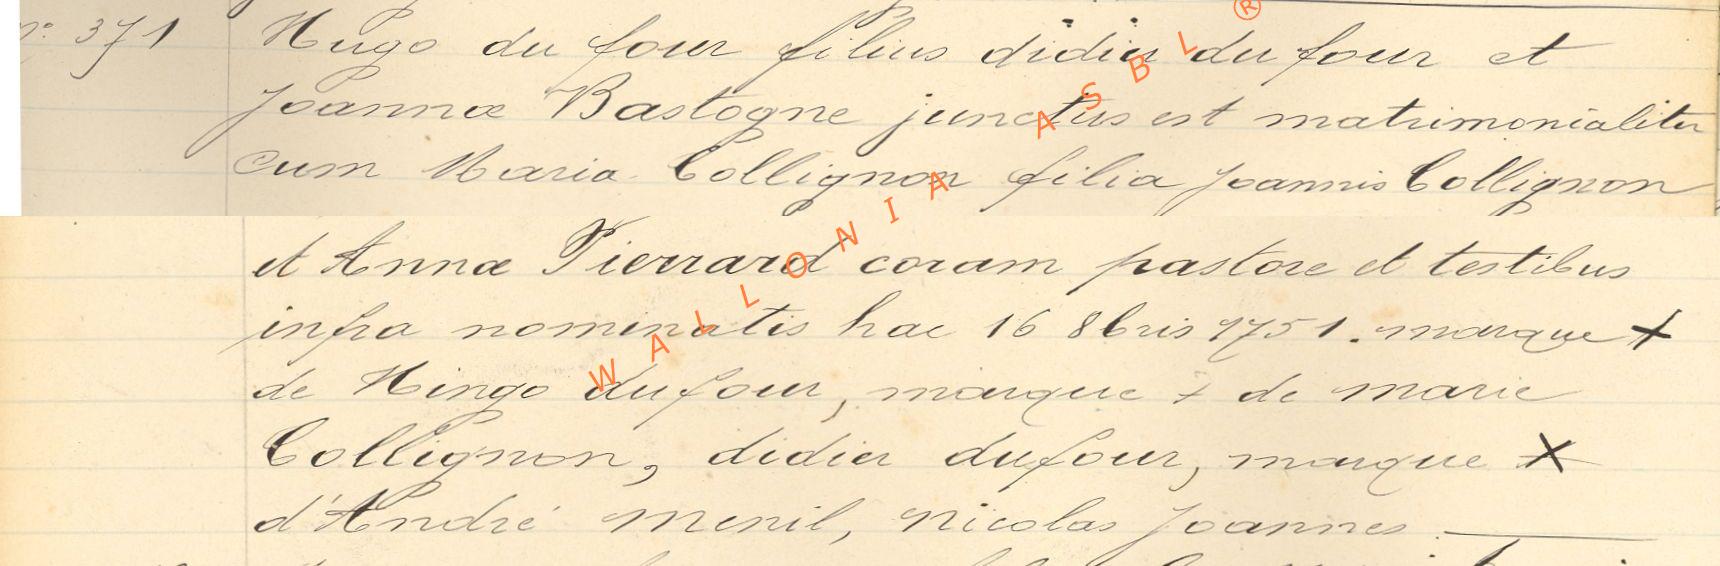 n° 371 Hugo du four filius didier du four et
Joannæ Bastogne junctus est matrimonialiter
cum Maria Collignon filia Joannis Collignon
et Annæ Pierrard coram pastore et testibus
infra nominatis hac 16 8bris 1751. marque +
de Hingo du four, marque + de marie
Collignon, didier dufour, marque X
d'André menil, nicolas Joannes
WALLONIA ASBL ®